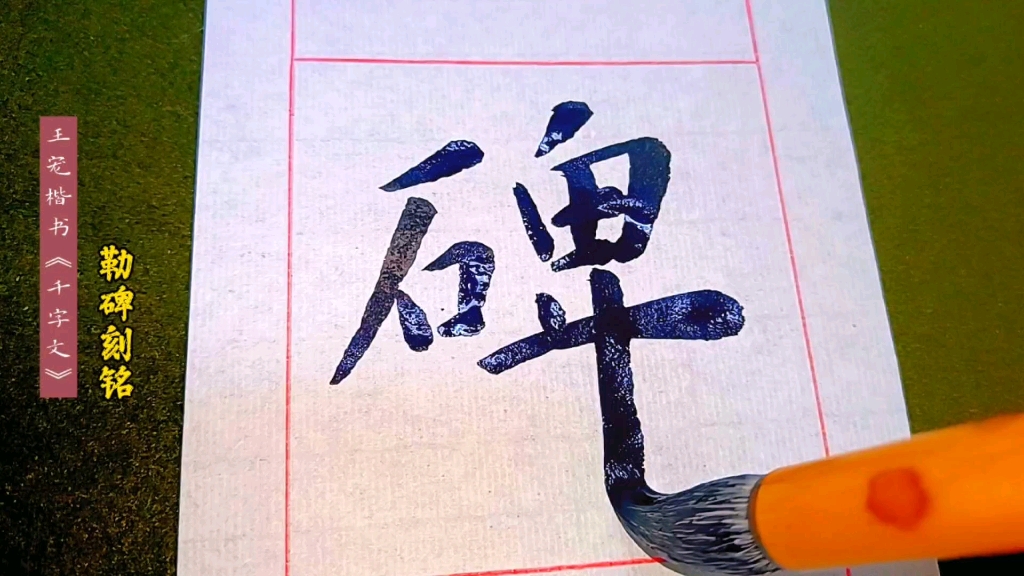 王宠楷书《千字文》
勒碑刻铭
碑